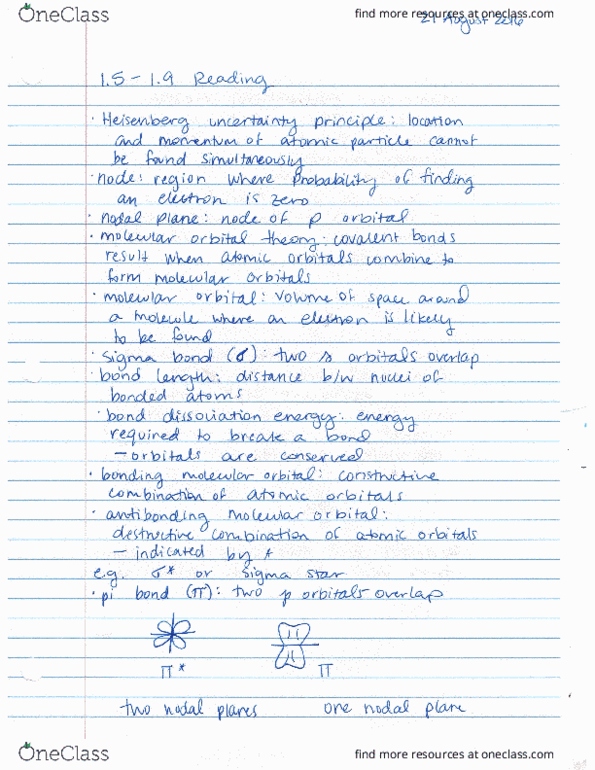 OneClass
find more resources at oneclass.com
21 August 2016
1.5-1.9 Reading
· Heisenberg uncertainty principle: location
and momentum of atomic particle cannot
be found simultaneously
· node: region where probability of finding
an electron is zero
· nodal plane: node of p orbital
· molecular orbital theory: covalent bonds
result when atomic orbitals combine to
form molecular orbitals
· molecular orbital: volume of space around
a molecule where an electron is likely
to be found
· sigma bond (σ): two s orbitals overlap
· bond length: distance b/w nuclei of
bonded atoms
· bond dissociation energy: energy
required to break a bond
- orbitals are conserved
· bonding molecular orbital: constructive
combination of atomic orbitals
· antibonding molecular orbital:
destructive combination of atomic orbitals
- indicated by *
e.g. σ* or sigma star
· pi bond (π): two p orbitals overlap
π* π
two nodal planes one nodal plane
OneClass
find more resources at oneclass.com